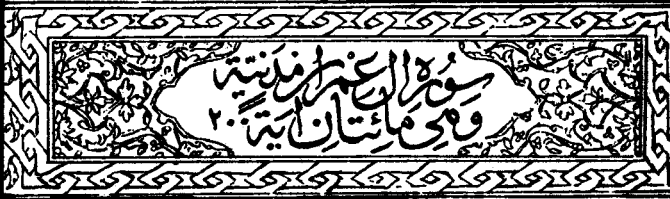 سُورَةُ اٰلِ عِمْرٰنَ مَدَنِيَّةٌ
وَهِيَ مِائَتَانِ اٰيَةً ٢٠٠